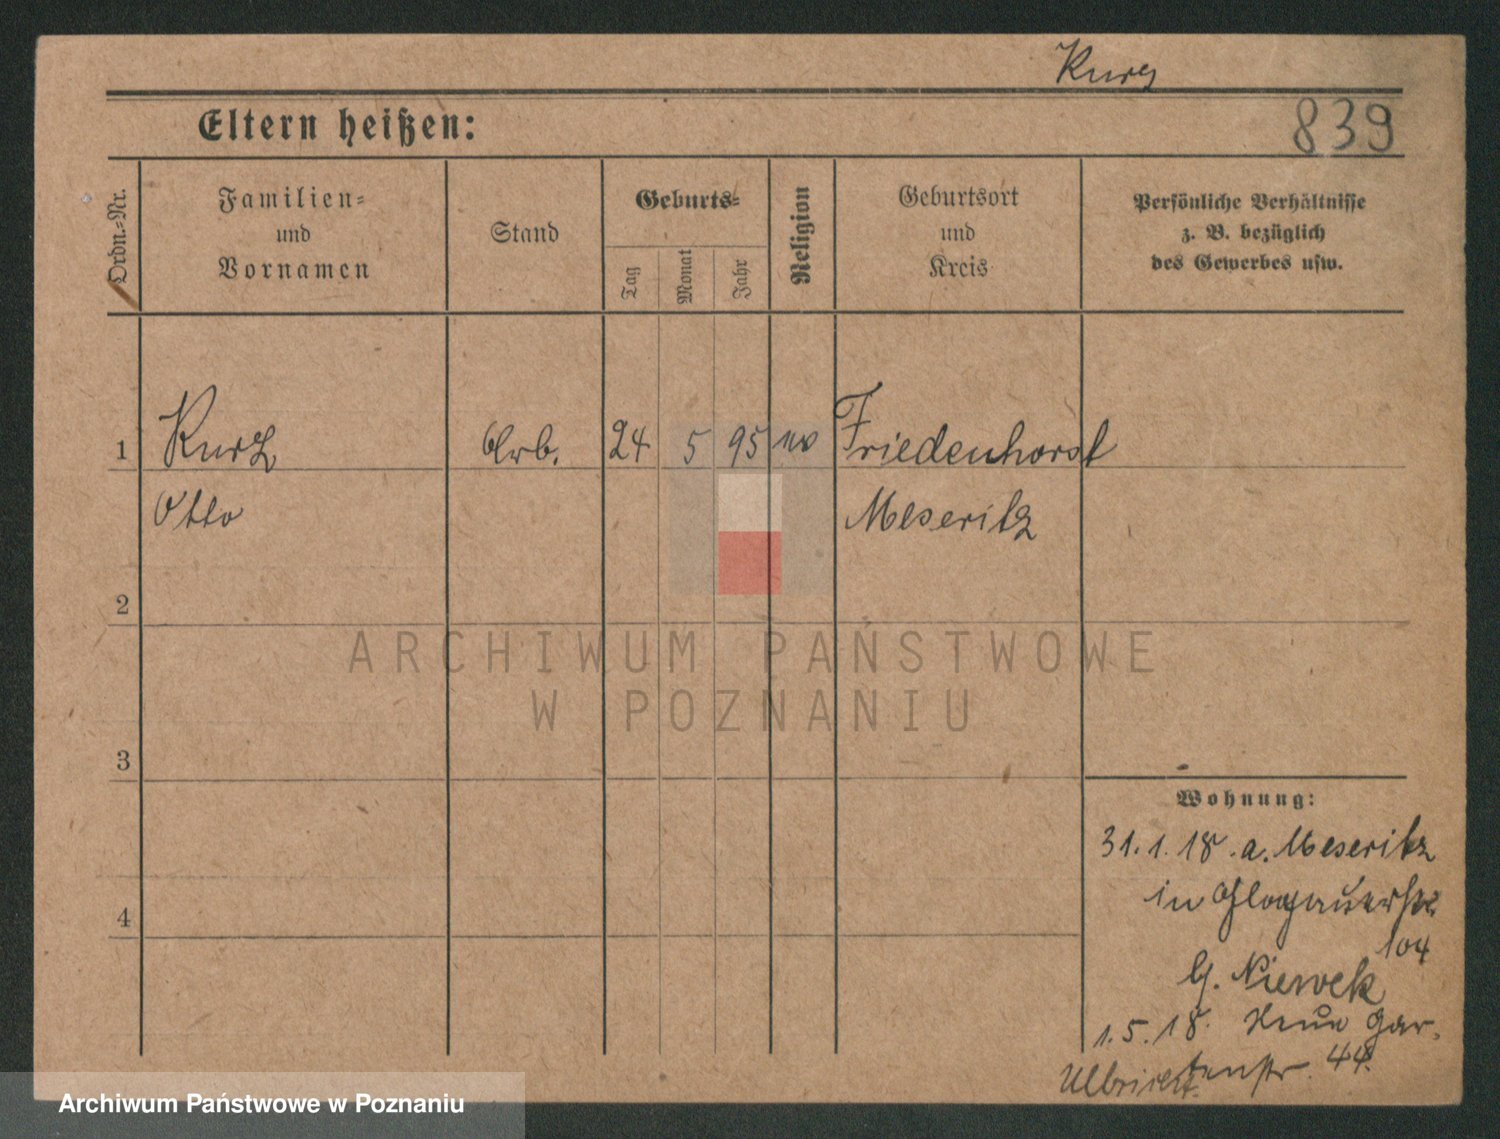 Kurz
Eltern heißen:
839
Ordn.=Nr.
Familien=
und
Vornamen
Stand
Geburts=
Tag
Monat
Jahr
Religion
Geburtsort
und
Kreis
Persönliche Verhältnisse
z. B. bezüglich
des Gewerbes usw.
1
Kurz
Arb.
24
5
95
ev
Friedenhorst
Otto
Meseritz
2
ARCHIWUM PAŃSTWOWE
W POZNANIU
3
Wohnung:
31.1.18. a. Meseritz
in Glogauerstr
104
b. Niewek
4
1.5.18. Neue Gar-
tenstr. 44.
Ulbricht
Archiwum Państwowe w Poznaniu